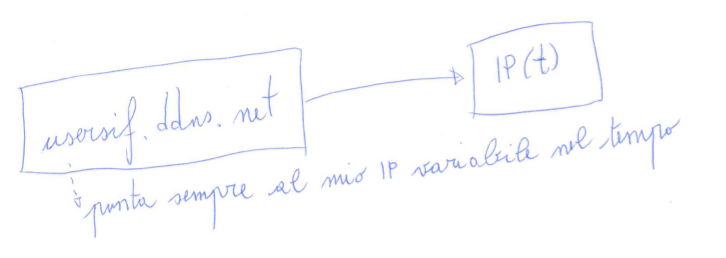 usersif.ddns.net
IP(t)
punta sempre al mio IP variabile nel tempo